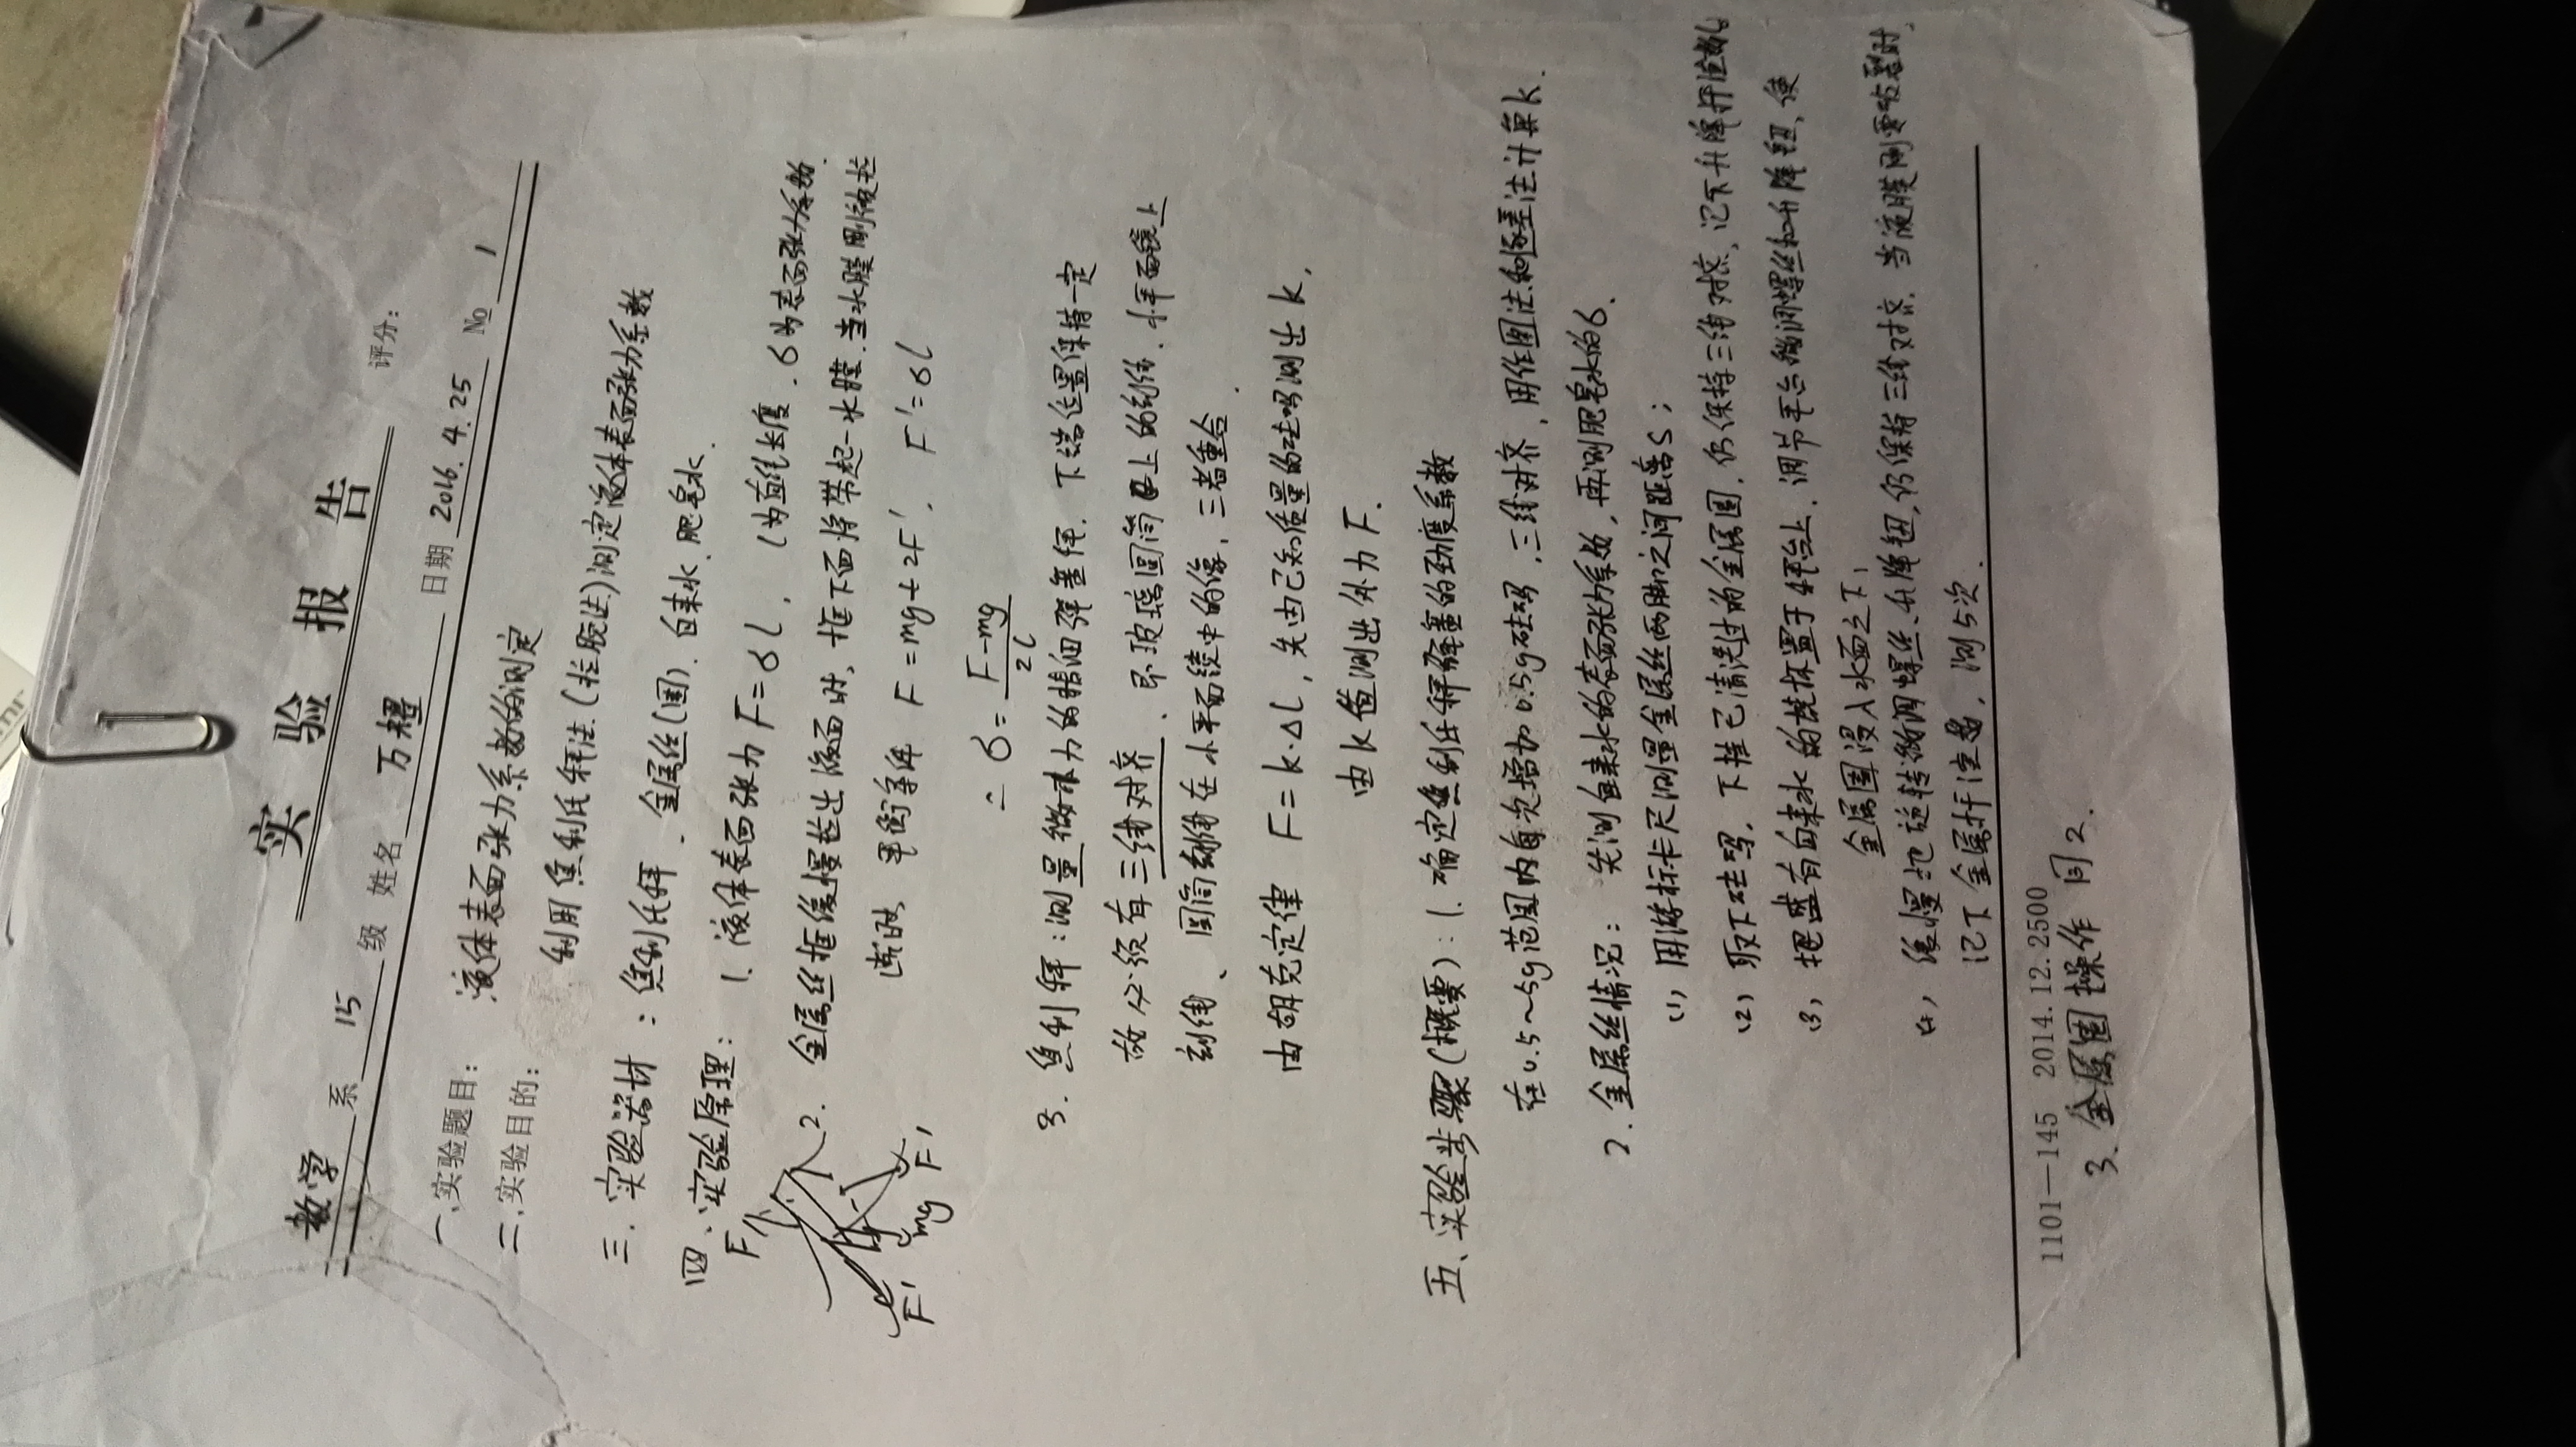 实 验 报 告
评分:
数学 系 15 级 姓名 万翟 日期 2016.4.25 № 1
一.实验题目: 液体表面张力系数的测定
二.实验目的: 利用焦利氏秤法(拉脱法)测定液体表面张力系数
三.实验器材: 焦利氏秤、金属丝(圈)、自来水、肥皂水.
四、实验原理: 1. 液体表面张力 F=σl, l为直线长度, σ为表面张力系数.
2. 金属丝框缓慢拉出液面时, 框下面将带起一水膜, 当水膜刚被拉
断时, 平衡条件 F=mg+2F', F'=σl
∴ σ=F-mg/2l
F
F'
mg
F'
3. 焦利秤:测量微小力的精细弹簧秤. 下端位置保持一定
故必须有三线对齐、即玻璃圆筒上的刻线、小平面镜上
刻线、圆筒刻线在小平面镜中的像, 三者重合.
由胡克定律 F=k·Δl, 先由已知质量的砝码测出k,
由k值测出外力F.
五、实验步骤(概要): 1. 确定焦利氏秤弹簧的劲度系数
在0.5~5g范围内每次增加0.5g砝码, 三线对齐, 用作图法和逐差法计算k.
2. 金属丝情况: 先测自来水的表面张力系数, 再测肥皂水的σ.
(1), 用游标卡尺测量金属丝两脚之间距离S;
(2), 取下砝码, 下挂已清洗过的金属圈, 仍保持三线对齐, 记下升降杆位置l₀
(3), 把盛有自来水的烧杯置于平台上, 调节平台微调螺丝和升降钮, 使
金属圈浸入水面之下;
(4), 缓慢地旋转微调螺丝、升降钮, 仍保持三线对齐, 当液膜刚要破裂时,
记下金属杆读数, 测5次.
1101—145 2014.12.2500
3. 金属圈操作 同2.